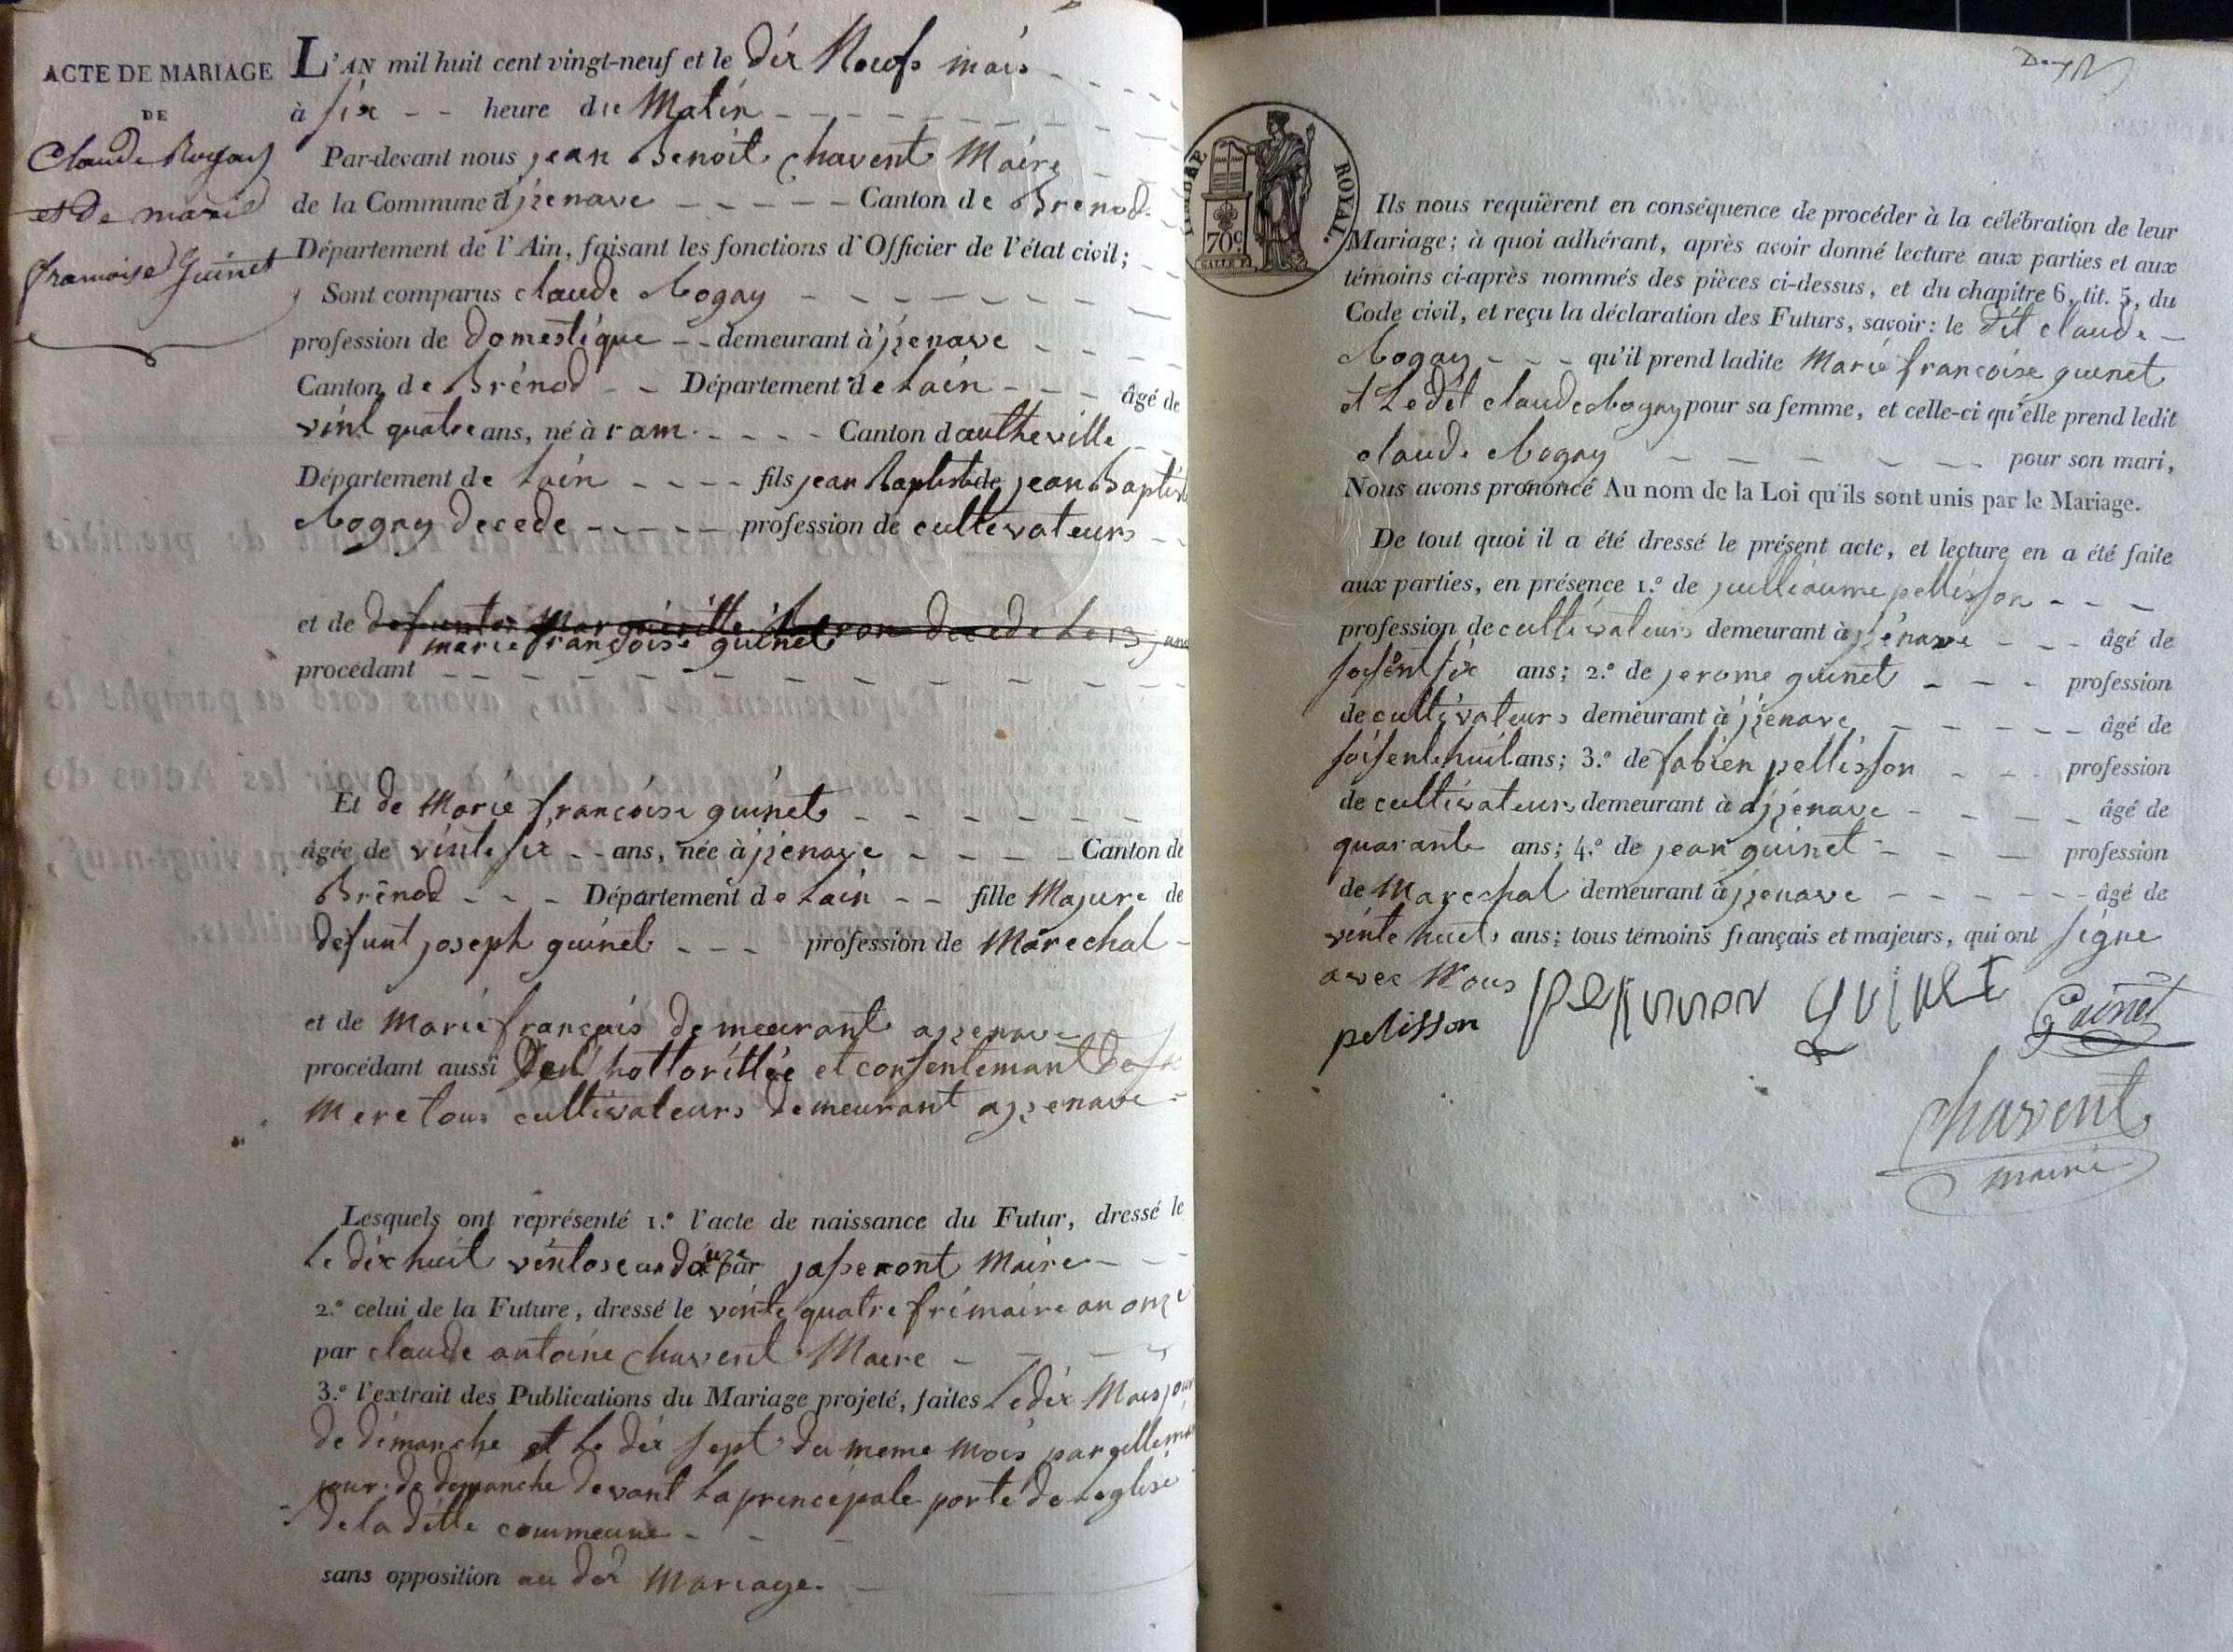 ACTE DE MARIAGE
DE
Claude Bogay
et de marie
francoise Guinet
L'AN mil huit cent vingt-neuf et le dix Neufs mais
à six heure du Matin
Par-devant nous jean Benoit Chavent Maire
de la Commune djzenave Canton de Brenod
Département de l'Ain, faisant les fonctions d'Officier de l'état civil;
Sont comparus claude Bogay
profession de domestique demeurant à jzenave
Canton de Brénod Département de Lain âgé de
vint quatre ans, né à ram Canton d autheville
Département de Lain fils jean baptiste de jean Baptist
Bogay decede profession de cultivateurs
et de defunte Marguéritte decede Le 13 janv
marie francoise guinet
procédant
Et de Marie francoise guinet
âgée de vinte six ans, née à jzenave Canton de
Brénod Département de Lain fille Majure de
defunt joseph guinet profession de Marechal
et de Marie francais demeurant a jzenave
procédant aussi hottorittée et consentemant de sa
Mere tous cultivateurs demeurant a jzenave
Lesquels ont représenté 1.º l'acte de naissance du Futur, dressé le
le dix huit ventose an douze par jasseront Maire
2.º celui de la Future, dressé le vente quatre frimaire an onze
par claude antoine Chavent Maire
3.º l'extrait des Publications du Mariage projeté, faites Le dix Mais jour
de dimanche et Le dix sept du meme mois par
jour de demanche devant La principale porte de Leglise
de la ditte commeune
sans opposition au dit Mariage.
TIMBRE ROYAL.
70c
Ils nous requièrent en conséquence de procéder à la célébration de leur
Mariage; à quoi adhérant, après avoir donné lecture aux parties et aux
témoins ci-après nommés des pièces ci-dessus, et du chapitre 6, tit. 5, du
Code civil, et reçu la déclaration des Futurs, savoir: le dit claude
Bogay qu'il prend ladite Marie francoise guinet
et Ledit claude Bogay pour sa femme, et celle-ci qu'elle prend ledit
claude Bogay pour son mari,
Nous avons prononcé Au nom de la Loi qu'ils sont unis par le Mariage.
De tout quoi il a été dressé le présent acte, et lecture en a été faite
aux parties, en présence 1.º de juilliaume pellisson
profession de cultivateurs demeurant à jzénave âgé de
soisent six ans; 2.º de jerome guinet profession
de cultivateurs demeurant à jzenave âgé de
soisente huit ans; 3.º de fabien pellisson profession
de cultivateurs demeurant à djzenave âgé de
quarante ans; 4.º de jean guinet profession
de Marechal demeurant à jzenave âgé de
vinte huet ans; tous témoins français et majeurs, qui ont signe
avec Nous
pelisson guinet Guinet
Chavent
maire